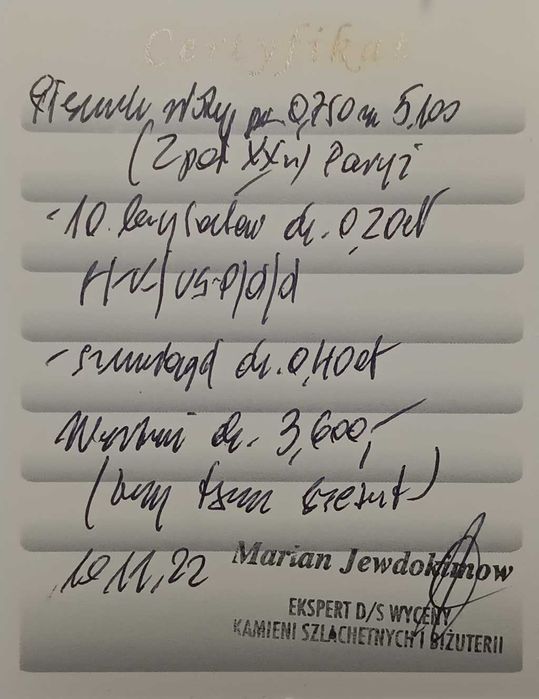 Certyfikat
Pierścionek złoty pr. 0,750 m 5,10g
(2 poł XX w) Paryż
- 10 brylantów ok. 0,20ct
H-
- szmaragd ok. 0,40ct
Wartość ok. 3,600,-
10 11, 22
Marian Jewdokimow
EKSPERT D/S WYCENY
KAMIENI SZLACHETNYCH I BIŻUTERII